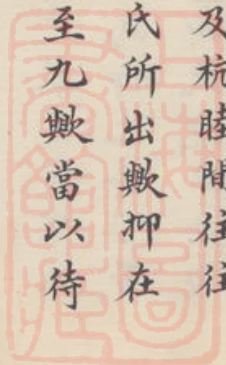 及杭睦間往往
氏所出歟抑在
至九歟當以待